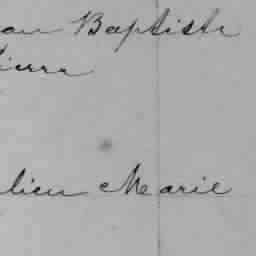 an Baptiste
ierre
lien Marie